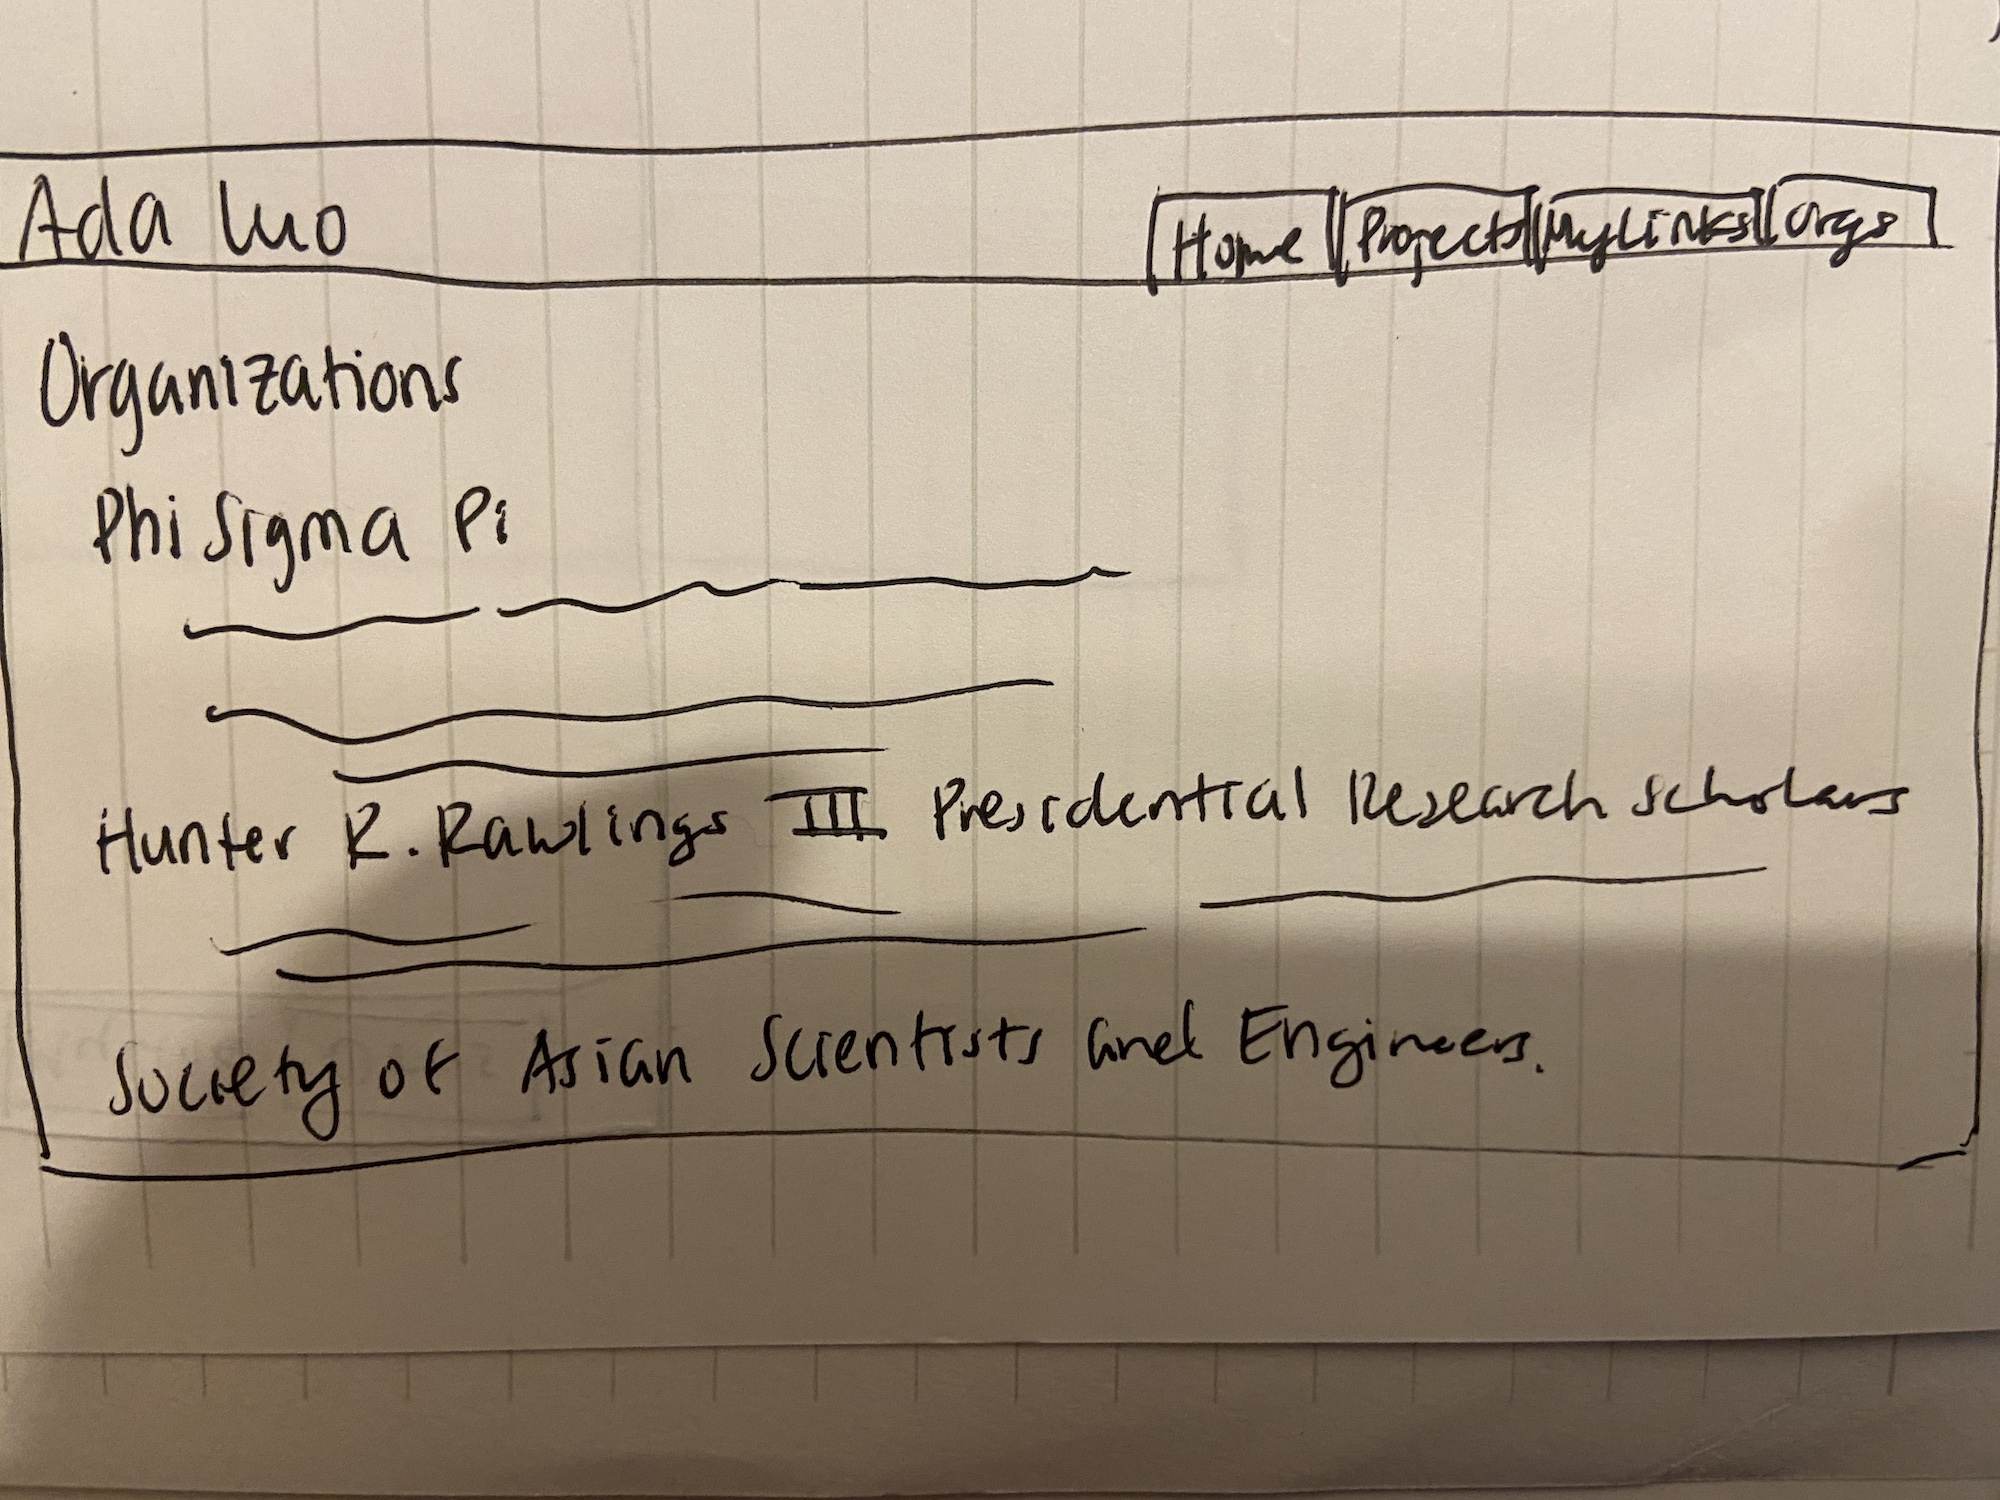 Ada Luo
Home Projects MyLinks Orgs
Organizations
Phi Sigma Pi
Hunter R. Rawlings III Presidential Research Scholars
Society of Asian Scientists and Engineers.